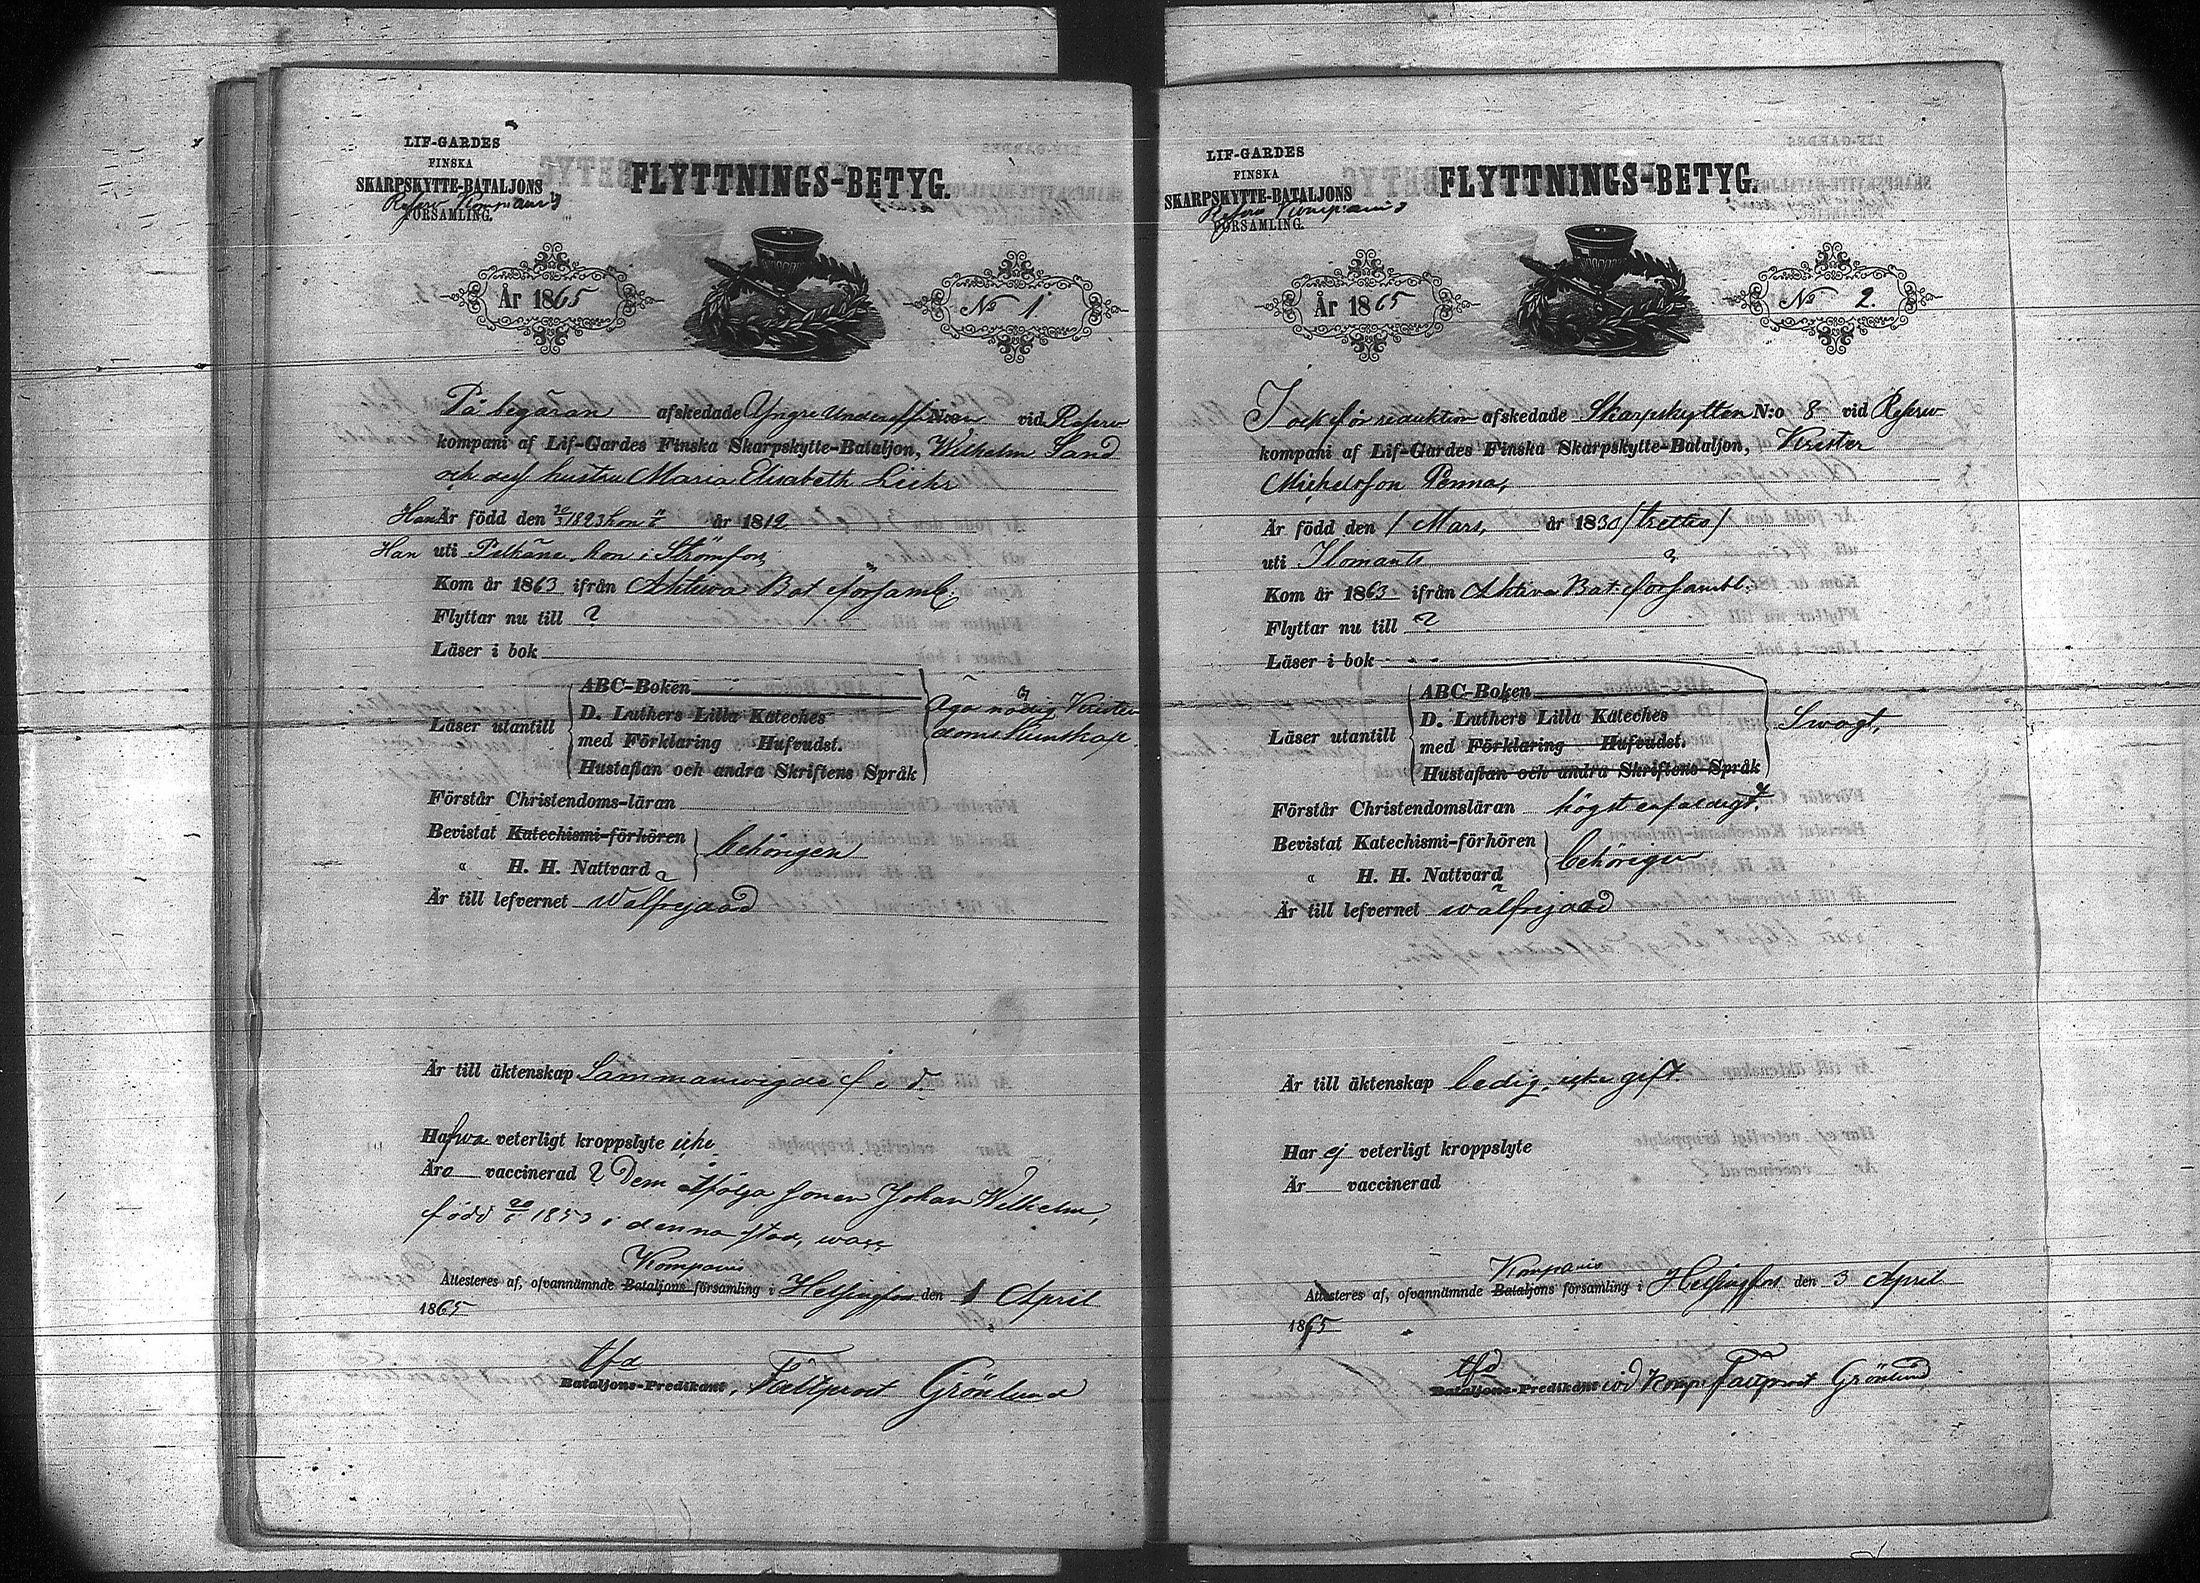 LIF-GARDES
FINSKA
SKARPSKYTTE-BATALJONS
Reserv Kompanis
FÖRSAMLING.
FLYTTNINGS-BETYG.
År 1865
No 1
På begäran afskedade Yngre Underoff N:o vid Reserv
kompani af Lif-Gardes Finska Skarpskytte-Bataljon, Wilhelm Sand
och dess hustru Maria Elisabeth
Han Är född den 20/3 1823 hon år 1812
Han uti Pelkäne, hon i Strömfors
Kom år 1863 ifrån Aktiva Bat församl.
Flyttar nu till ?
Läser i bok
Läser utantill
ABC-Boken
D. Luthers Lilla Kateches
med Förklaring Hufvudst.
Hustaflan och andra Skriftens Språk
Äga nödig Kristen
doms Kunskap.
Förstår Christendoms-läran
Bevistat Katechismi-förhören
" H. H. Nattvard
behörigen
Är till lefvernet wälfrejdad
Är till äktenskap Sammanvigde
Hafwa veterligt kroppslyte icke
Äro vaccinerad ? Dem åtfölja sonen Johan Wilhelm,
född 1853 i denna stad,
Kompanis
Attesteres af, ofvannämnde Bataljons församling i Helsingfors den 1 April
1865
tfd
Bataljons-Predikant, Fältprost Grönlund
LIF-GARDES
FINSKA
SKARPSKYTTE-BATALJONS
Reserv Kompanis
FÖRSAMLING.
FLYTTNINGS-BETYG.
År 1865
No 2.
I och för reduktion afskedade Skarpskytten N:o 8 vid Reserv
kompani af Lif-Gardes Finska Skarpskytte-Bataljon, Krister
Michelsson Penna,
Är född den 1 Mars, år 1830 / trettio /
uti Ilomants
Kom år 1863 ifrån Aktiva Bat: försambl.
Flyttar nu till ?
Läser i bok
Läser utantill
ABC-Boken
D. Luthers Lilla Kateches
med Förklaring Hufvudst.
Hustaflan och andra Skriftens Språk
Swagt,
Förstår Christendomsläran högst enfaldigt.
Bevistat Katechismi-förhören
" H. H. Nattvard
behörigen
Är till lefvernet wälfrejdad
Är till äktenskap ledig, icke gift.
Har ej veterligt kroppslyte
Är vaccinerad
Kompanis
Attesteres af, ofvannämnde Bataljons församling i Helsingfors den 3 April
1865
tfd
Bataljons-Predikant vid Komp: Fältprost Grönlund